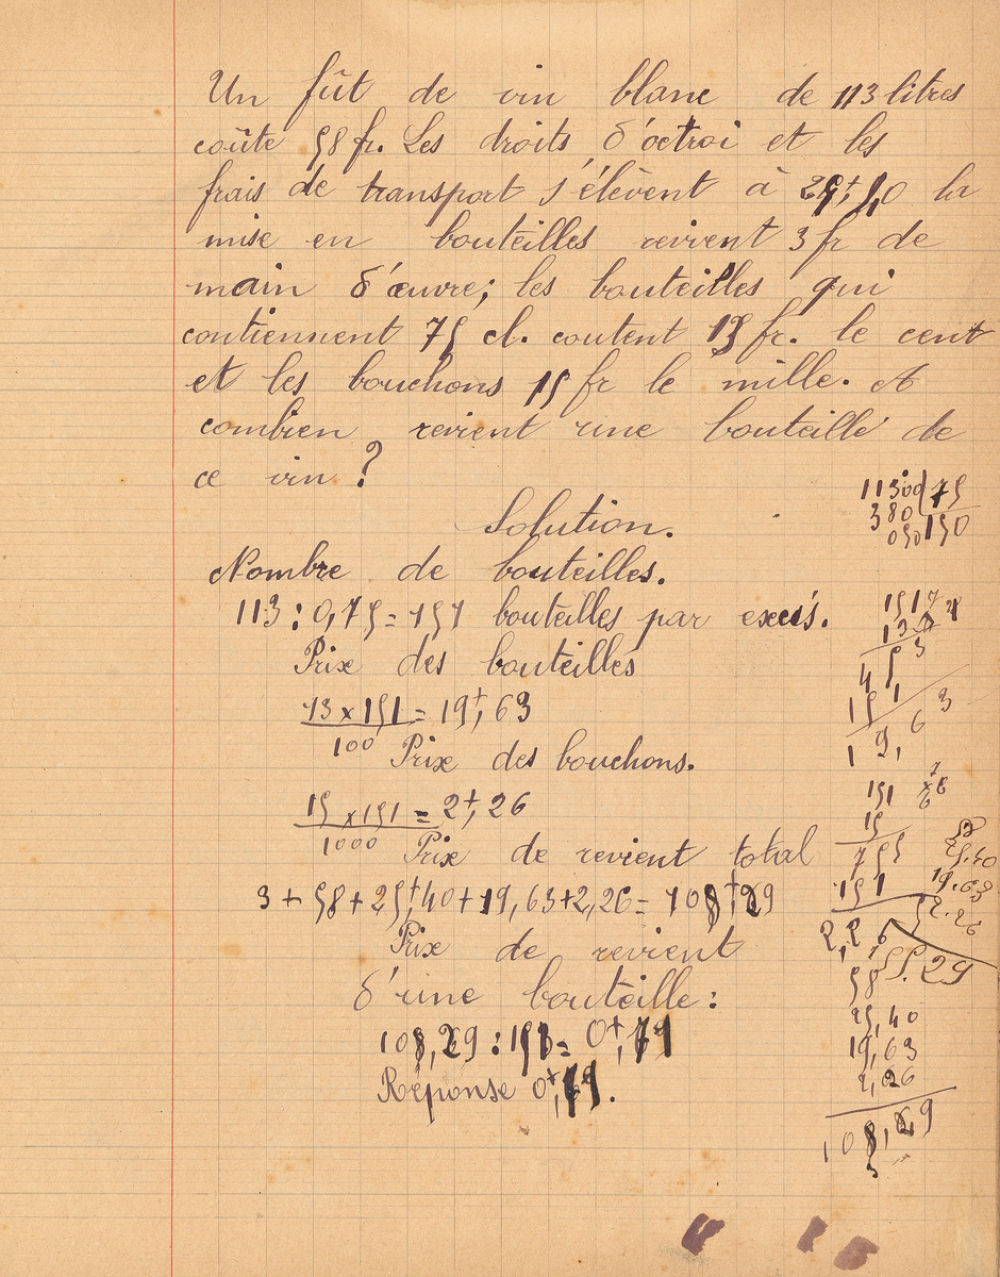 Un fût de vin blanc de 113 litres
coûte 58 fr. Les droits d'octroi et les
frais de transport s'élèvent à 25f,40 la
mise en bouteilles revient 3 fr de
main d'œuvre; les bouteilles qui
contiennent 75 cl. coutent 13 fr. le cent
et les bouchons 15 fr le mille. A
combien revient une bouteille de
ce vin ?
Solution.
Nombre de bouteilles.
113 : 0,75 = 151 bouteilles par excès.
Prix des bouteilles
13 x 151 = 19f,63
100
Prix des bouchons.
15 x 151 = 2f,26
1000
Prix de revient total
3 + 58 + 25f,40 + 19,63 + 2,26 = 108f,29
Prix de revient
d'une bouteille :
108,29 : 151 = 0f,71
Réponse 0f,71.
11300 75
380 150
050
151
13
453
151
19,63
151
15
755
151
2,26
25.40
19.63
2.26
58
25,40
19,63
2,26
108,29
3